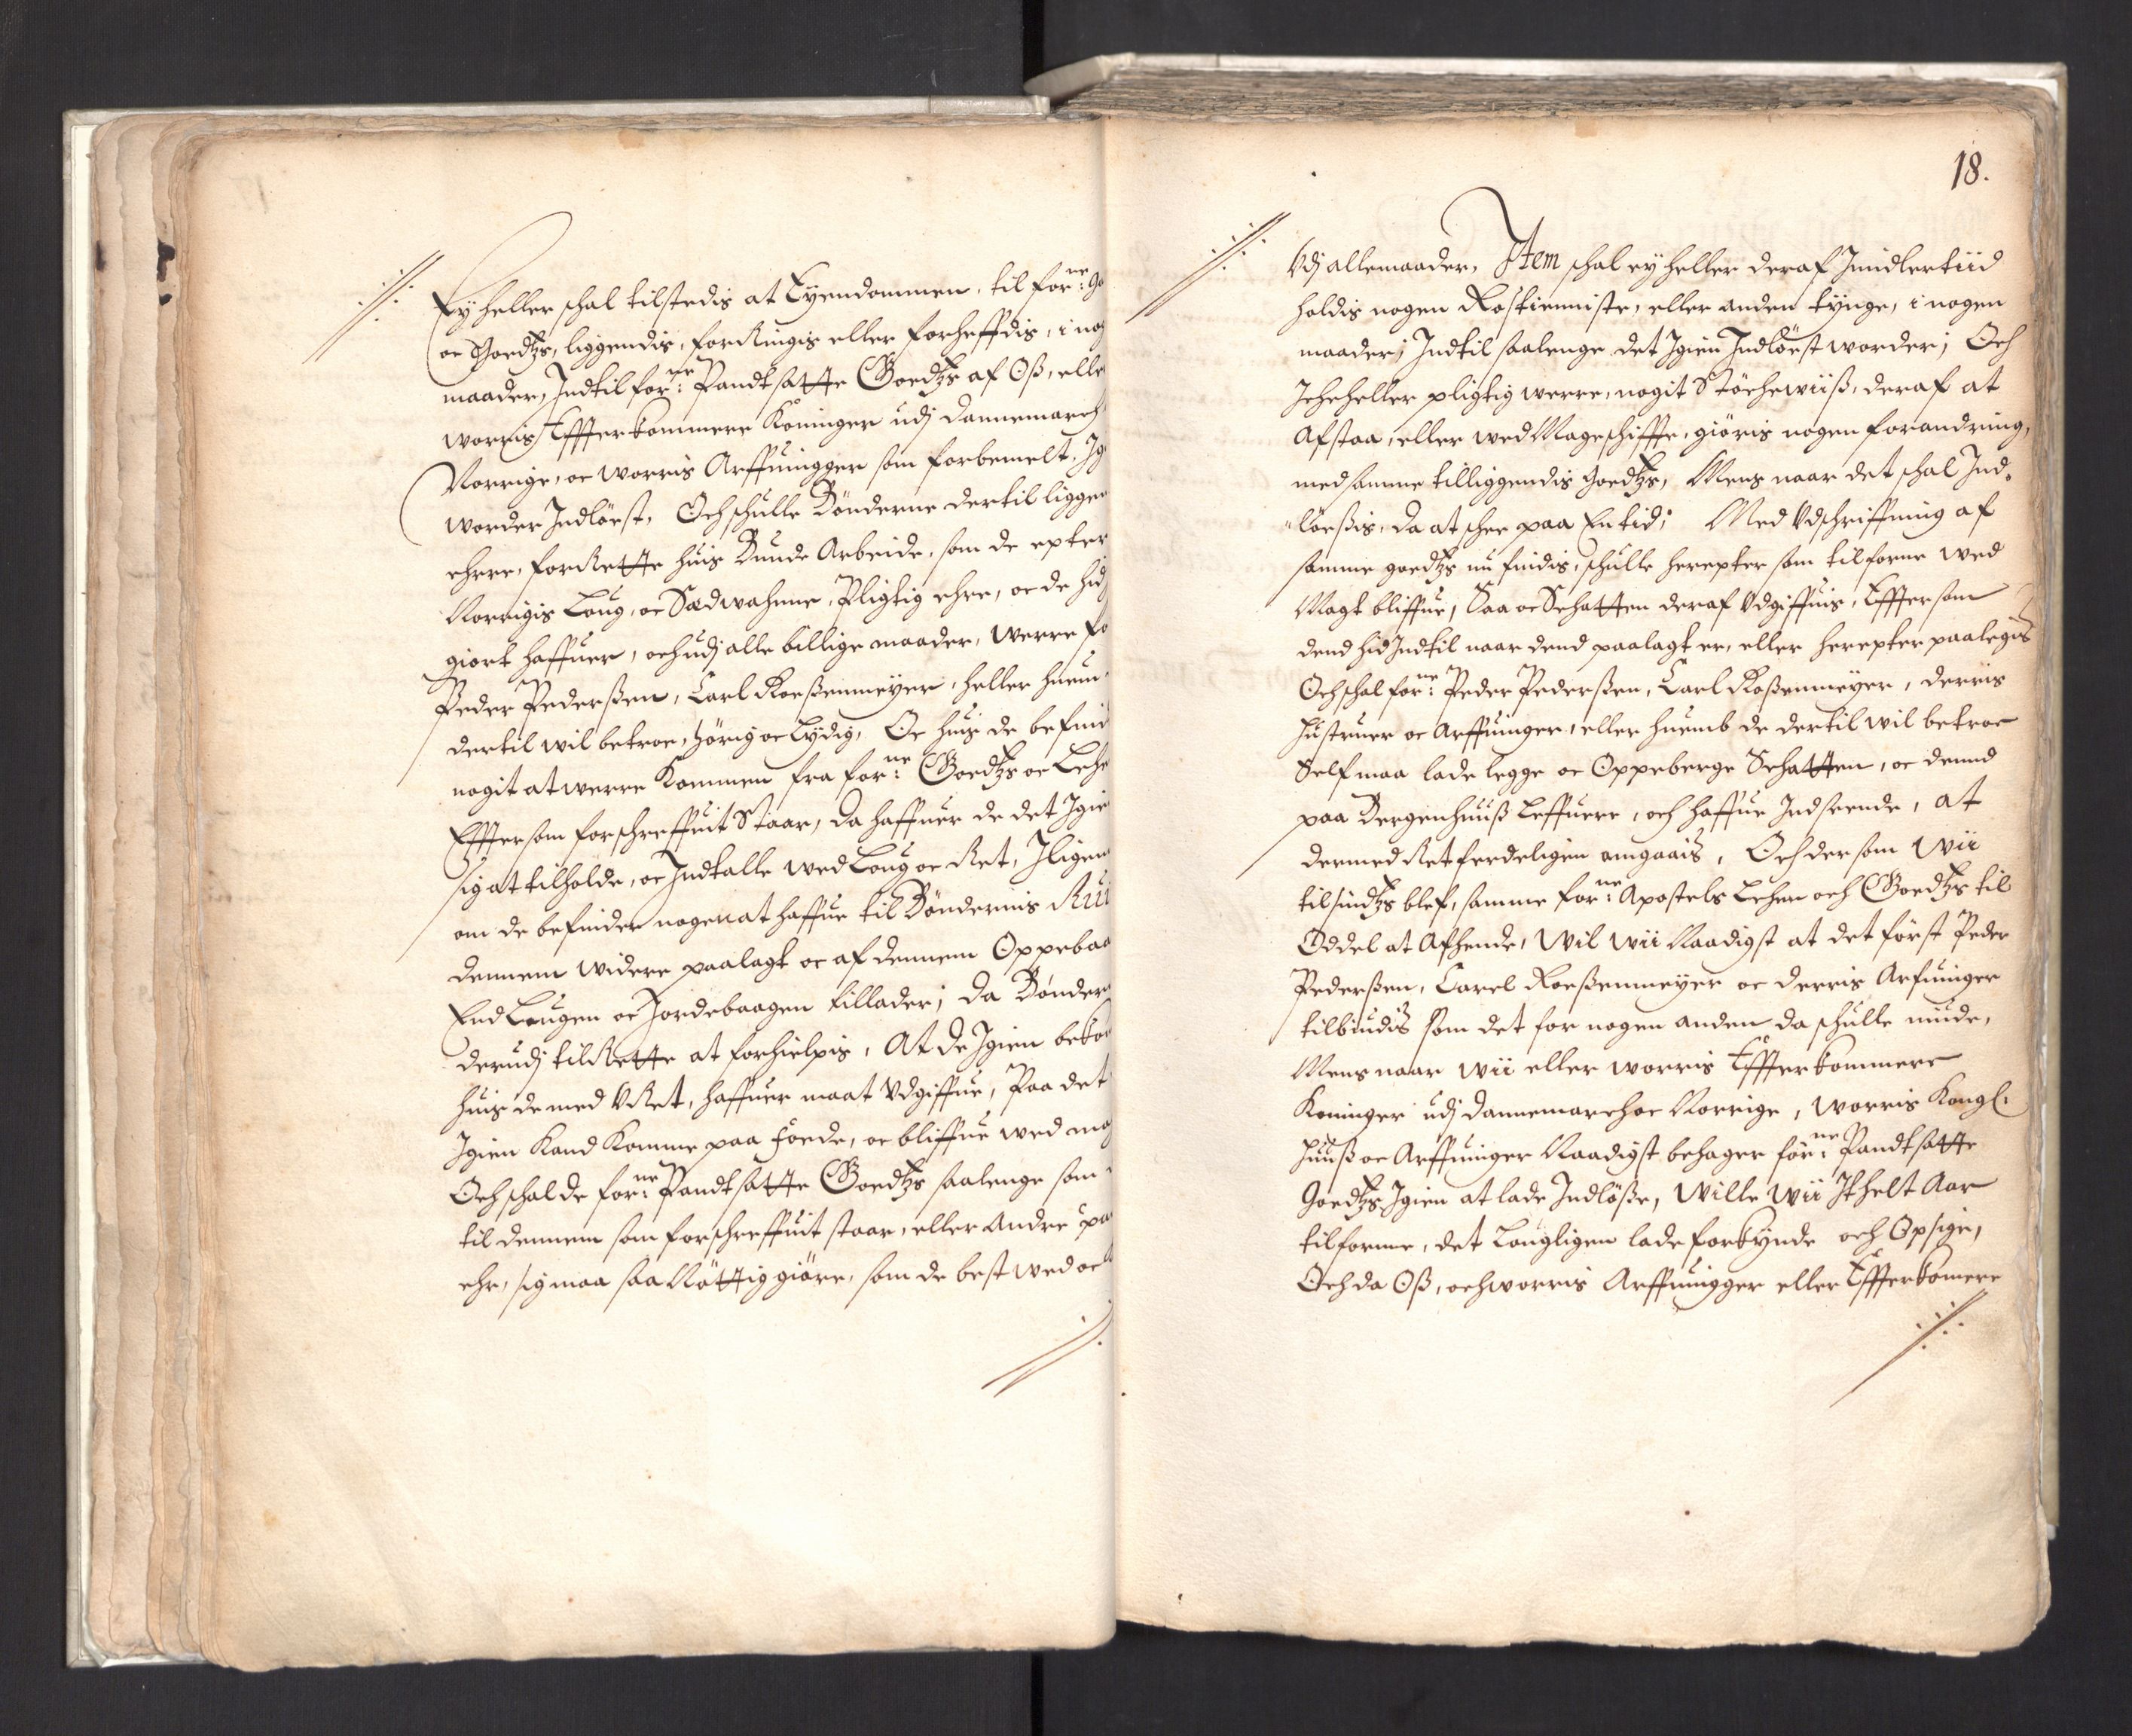 Ey heller schal tilstedis at Eyendommen, til forne: Go
oc Goedtzs, liggendis, forkringis eller forheffdis, i nog
maader, Indtil forne: Pandtsatte Goedtzs af Oß, elle
worris Effterkommere Koninger udj Dannemarch
Norrige, oc worris Arffuingger som forbemelt, Ig
worder Indlöest, Och schulle Bönderne dertil liggen
ehrre, forRette huis Bunde Arbeide, som de epter
Norrigis Loug, oc Sædwahnne, Pligtig ehre, oc de hid
giort haffuer, och udj alle billige maader, werre fo
Peder Pederßen, Carl Roeßenmeyer, heller huem
dertil wil betroe, hörig oc Lydig, Oc huis de befind
nogit at werre Kommen fra forne: Goedtzs oc Lehe
Efftersom forschreffuit Staar, da haffuer de det Igie
sig at tilholde, oc Indtalle wed Loug oc Ret, Iligem
om de befinder nogen at haffue til Böndernis Rui
dennem widere paalagt oc af dennem Oppebaa
End Lougen oc Jordebaagen tillader; da Bönder
derudj tilRette at forhielpis, At de Igien beko
huis de med URet, haffuer maat Udgiffue, Paa det
Igien Kand Komme paa foede, oc bliffue wed mag
Och schal de forne: Pandtsatte Goedtzs saalenge som
til dennem som forschreffuit staar, eller Andre pa
ehr, sig maa saa Nöttig giöre, som de best wed oc
18.
Udj allemaader, Item schal ey heller deraf Imidlertiid
holdis nogen Rostienniste, eller anden tynge, i nogen
maader; Indtil saalenge det Igien Indlöest worder; Och
Icheheller pligtig werre, nogit Stöchewiiß, deraf at
Afstaa, eller wed Mageschiffte, giöris nogen forandring,
med samme tilliggendis Goedtzs, Mens naar det schal Ind¬
löeßis, da at schee paa En tid; Med Udschriffning af
samme goedtzs nu findis, schulle herepter som tilforne wed
Magt bliffue, Saa oc Schatten deraf Udgiffuis, Efftersom
dend hid Indtil naar dend paalagt er, eller herepter paalegis
Och schal forne: Peder Pederßen, Carl Roßenmeyer, derris
Hustruer oc Arffuinger, eller huemb de dertil wil betroe
Self maa lade legge oc Oppeberge Schatten, oc dennd
paa Bergenhuuß Leffuere, och haffue Indseende, at
dermed Retferdeligen omgaais, Och dersom Wii
tilsindtzs blef, samme forne: Apostels Lehen och Goedtzs til
Oddel at Afhende, Wil Wii Naadigst at det först Peder
Pederßen, Carel Roeßenmeyer oc derris Arfuinger
tilbiudis som det for nogen anden da schulle niude,
Mens naar Wii eller worris Effterkommere
Koninger udj Dannemarch oc Norrige, worris Kongl:
Huuß oc Arffuinger Naadigst behager forne: Pandtsatte
Goedtzs Igien at lade Indlöße, Wille Wii It helt Aar
tilforne, det Lougligen lade forkynde och Opsige,
Och da Oß, och worris Arffuingger eller Effterkomere